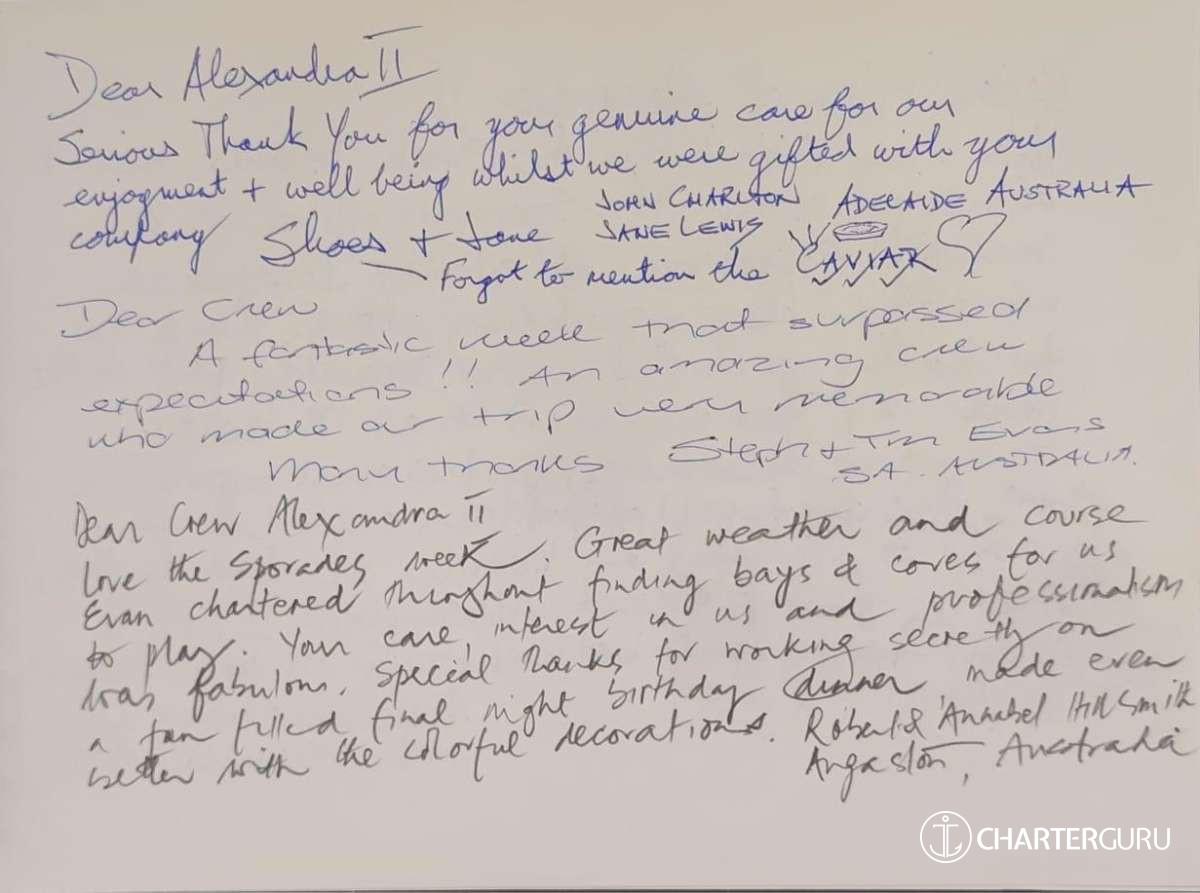 Dear Alexandra II
Serious Thank You for your genuine care for our
enjoyment + well being whilst we were gifted with your
company Shoes + Jane JOHN CHARLTON ADELAIDE AUSTRALIA
JANE LEWIS
Forgot to mention the CAVIAR
Dear Crew
A fantastic week that surpassed
expectations !! An amazing crew
who made our trip very memorable
Many thanks Steph + Tim Evans
SA. AUSTRALIA.
Dear Crew Alexandra II
love the Sporades week. Great weather and course
Evan chartered throughout finding bays & coves for us
to play. Your care, interest in us and professionalism
was fabulous. Special thanks for working secretly on
a fun filled final night birthday dinner made even
better with the colorful decorations. Robert & Annabel Hill Smith
Angaston, Australia
CHARTERGURU